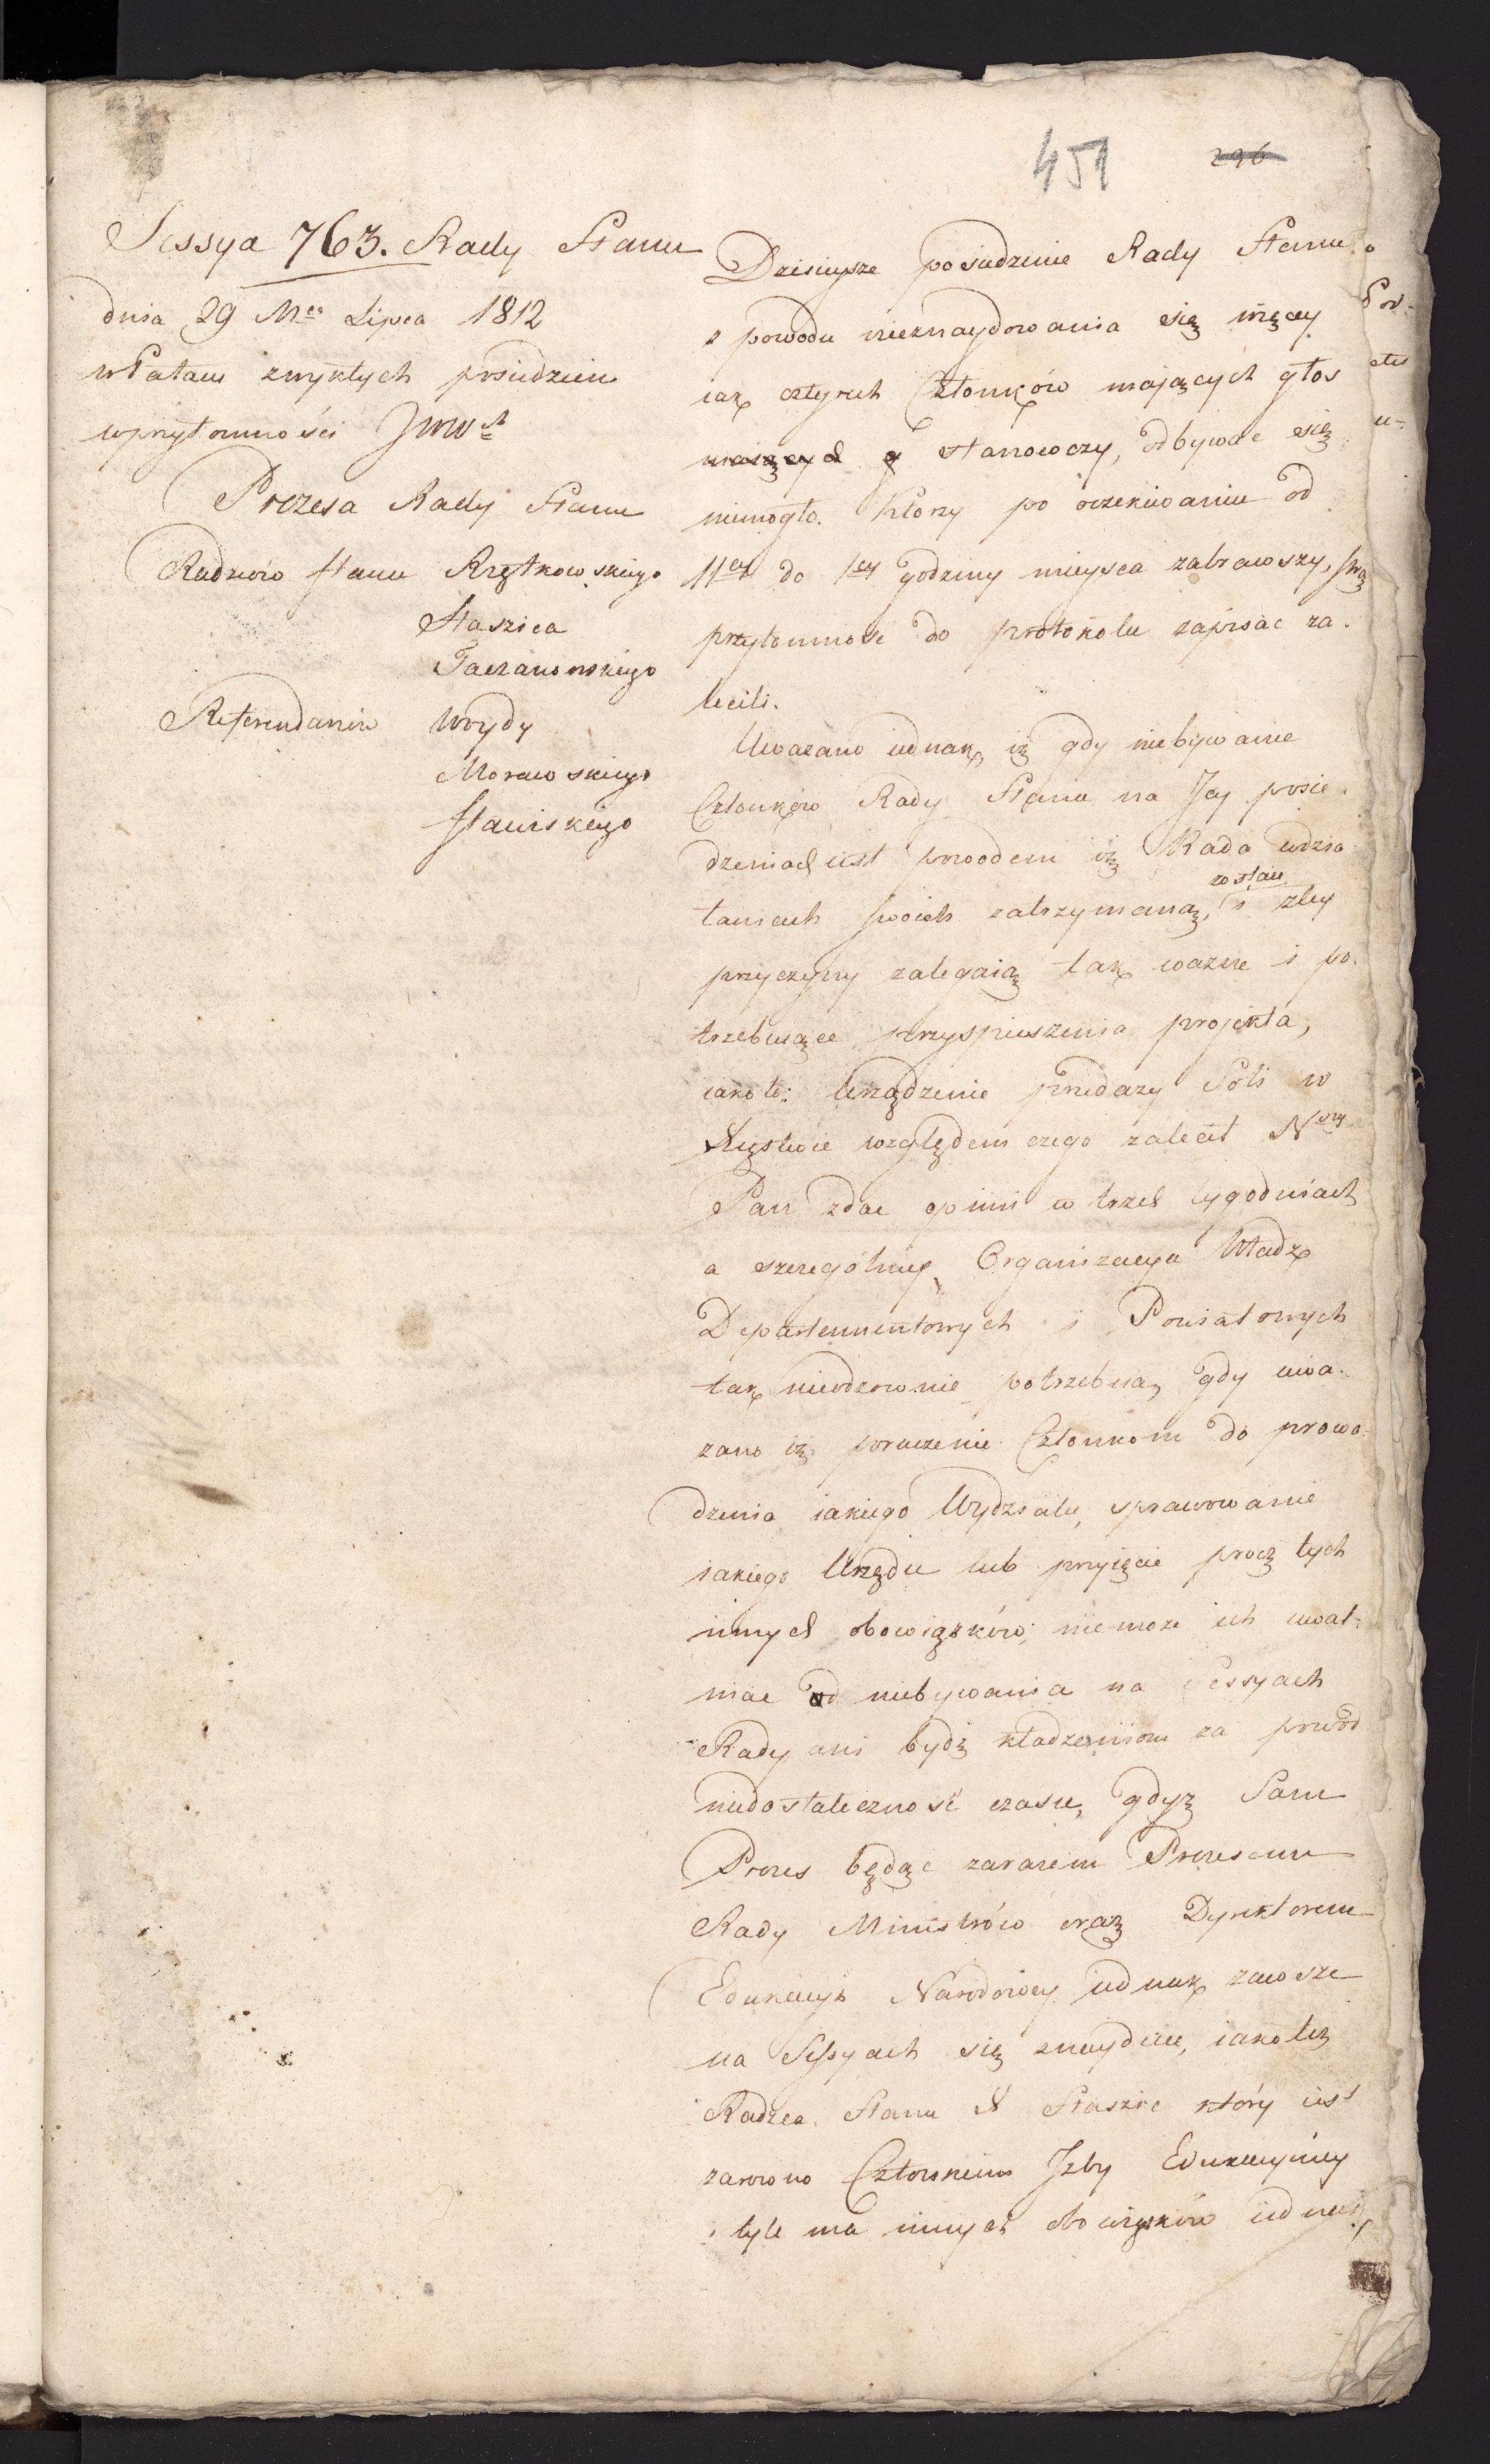 451 226
Sessya 763. Rady Stanu
dnia 29 Mca Lipca 1812
w Pałacu zwykłych posiedzień
w przytomności JWW
Prezesa Rady Stanu
Radzców Stanu Rzętkowskiego
Staszica
Taczanowskiego
Referendarzów Woydy
Morawskiego
Stawiskiego
Dzisieysze posiedzenie Rady Stanu
z powodu nieznaydowania się więcey
iak cztyrech Członków mających głos
maiących g stanowczy, odbywać się
niemogło. Którzy po oczekiwaniu od
11ey do 1ey godziny mieysca zabrawszy, swą
przytomność do protokołu zapisać za-
lecili.
Uważano iednak, iż gdy niebywanie
Członków Rady Stanu na Jey posie-
dzeniach iest powodem iż Rada w dzia-
łaniach swoich zatrzymaną zostaie, i z tey
przyczyny zalegaią tak ważne i po-
trzebuiące przyspieszenia projekta,
iako to: Urządzenie przedaży Soli w
Xięstwie względem czego zalecił Nay
Pan zdać opinii w trzech tygodniach
a szczególniey Organizacya Władz
Departamentowych i Powiatowych
tak nieodzownie potrzebna, gdy uwa-
żano iż poruczenie Członkom do prowa-
dzenia iakiego Wydziału, sprawowanie
iakiego Urzędu lub przyięcie procz tych
innych obowiązków; nie może ich uwal-
niać od niebywania na Sessyach
Rady, ani bydź kładzeniom za powód
niedostateczność czasu, gdyż Sam
Prezes będąc zarazem Prezesem
Rady Ministrów oraz Dyrektorem
Edukacyi Narodowey iednak zawsze
na Sessyach się znayduie, iakoteż
Radzca Stanu X Staszic który iest
zarówno Członkiem Izby Edukacyiney
i tyle ma innych obowiązków iednak